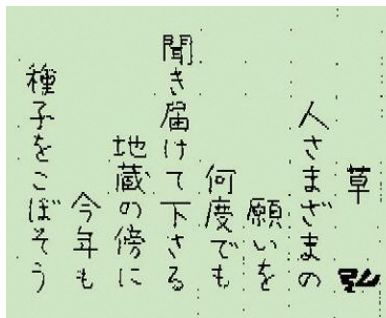 草
人さまざまの
願いを
何度でも
聞き届けて下さる
地蔵の傍に
今年も
種子をこぼそう